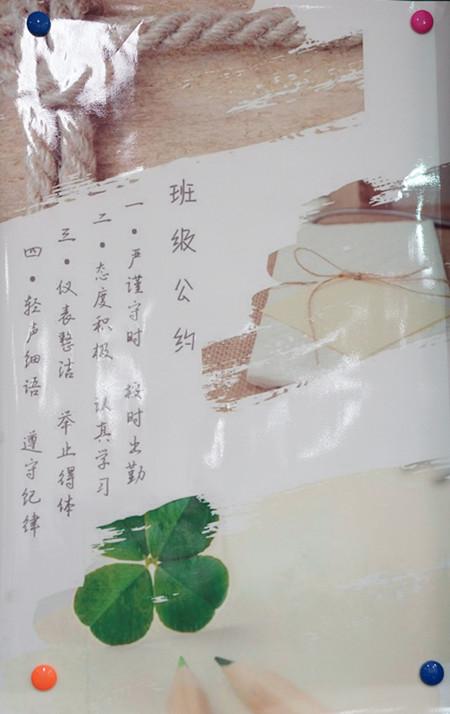 班级公约
一•严谨守时 按时出勤
二•态度积极 认真学习
三•仪表整洁 举止得体
四•轻声细语 遵守纪律